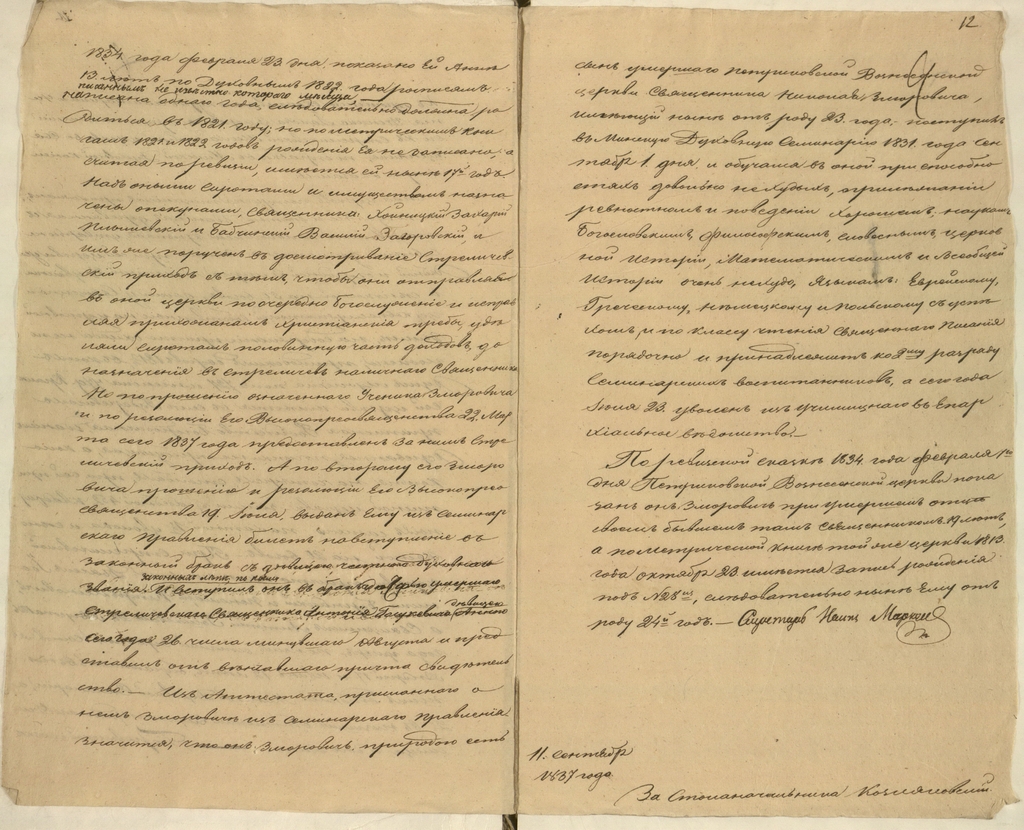 1834 года февраля 23 дня, показано Ей Анне
13 летъ по Духовнымъ 1822 года росписямъ
написана одного года, следовательно должна ро
диться въ 1821 году; но по метрическимъ кни
гамъ 1821 и 1822 годовъ рожденія Ея не записано, а
считая по ревизіи, имеется ей ныне 17й годъ
Надъ оными сиротами и имуществомъ назна
чены опекунами, Священники: Хойницкій Захарій
и Бабчинскій Василій Загоровскій, и
имъ же порученъ въ досматриваніе Стреличев
скій приходъ съ темъ, чтобы они отправляли
въ оной церкви по очередно Богослуженіе и исправ
ляя прихожанамъ христіанскія требы, уде
ляли сиротамъ половинную часть доходовъ, до
назначенія въ Стреличевъ наличнаго Священника
Но по прошенію означеннаго Ученика Зморовича
и по резолюціи Его Высокопреосвященства 22 Мар
та сего 1837 года предоставленъ за нимъ Стре
личевскій приходъ. А по второму его Зморо
вича прошенію и резолюціи Его Высокопрео
священства 19 Іюня, выданъ Ему изъ Семинар
скаго Правленія билетъ на вступленіе въ
законный бракъ съ девицею духовнаго
званія. И вступилъ онъ въ бракъ умершаго
Стреличевскаго Священника Антонія девицею Анною
сего года 26 числа минувшаго Августа и пред
ставилъ отъ венчавшаго причта свидетель
ство. — Изъ Аттестата, присланнаго о
немъ Зморовиче изъ Семинарскаго правленія
значится, что онъ Зморовичъ природою есть
12
сынъ умершаго Петриковской Вознесенской
церкви Священника Николая Зморовича,
имеющій ныне отъ роду 23 года. поступилъ
въ Минскую Духовную Семинарію 1831 года Сен
тября 1 дня и обучался въ оной при способно
стяхъ довольно не худыхъ, прилежаніи
ревностномъ и поведеніи хорошемъ, наукамъ:
Богословскимъ, Философскимъ, словеснымъ, церков
ной Исторіи, Математическимъ и Всеобщей
Исторіи очень не худо, языкамъ: Еврейскому,
Греческому, Немецкому и Польскому съ успе
хомъ, и по классу чтенія Священнаго Писанія
порядочно и принадлежитъ ко 2му разряду
Семинарскихъ воспитанниковъ, а сего года
Іюля 23 уволенъ изъ училищнаго въ Епар
хіальное ведомство. —
По ревизской сказке 1834 года Февраля 1го
дня Петриковской Вознесенской церкви пока
занъ онъ Зморовичъ при умершемъ отце
своемъ бывшемъ тамъ Священникомъ 19 летъ,
а по метрической книге той же церкви 1813
года октября 23 имеется запись рожденія
подъ № 28мъ, следовательно ныне Ему отъ
роду 24й годъ. — Секретарь
11 Сентября
1837 года
За Столоначальника